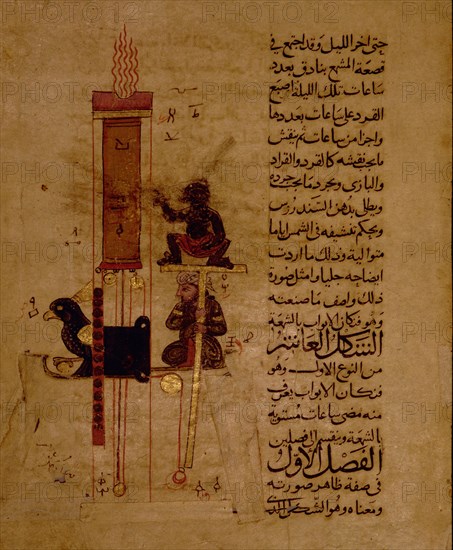 حتى اخر الليل وقد اجتمع في
قصعة المشمع بنادق بعدد
ساعات تلك الليلة واصبع
القرد على ساعات بعددها
واجزا من ساعات ثم ينقش
ما يجب نقشه كالقرد والقراد
والبازى ويجرد ما يجب جرده
ويطلى بدهن السندروس
ويحكم تنشيفه في الشمس اياما
متوالية وذلك ما اردت
ايضاحه جليا وامثل صورة
ذلك واصف ما صنعته
وهو فنكان الابواب بالشمعة
الشكل العاشر
من النوع الاول وهو
فنكان الابواب يعرف
منه مضى ساعات مستوية
بالشمعة وينقسم الى فصلين
الفصل الاول
في صفة ظاهر صورته
ومعناه وهو الشكل الذى